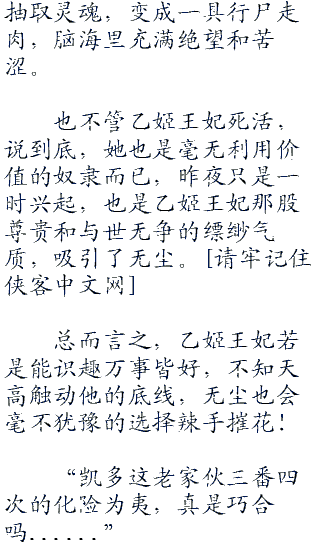 抽取灵魂，变成一具行尸走
肉，脑海里充满绝望和苦
涩。
也不管乙姬王妃死活，
说到底，她也是毫无利用价
值的奴隶而已，昨夜只是一
时兴起，也是乙姬王妃那股
尊贵和与世无争的缥缈气
质，吸引了无尘。[请牢记住
侠客中文网]
总而言之，乙姬王妃若
是能识趣万事皆好，不知天
高触动他的底线，无尘也会
毫不犹豫的选择辣手摧花！
“凯多这老家伙三番四
次的化险为夷，真是巧合
吗......”